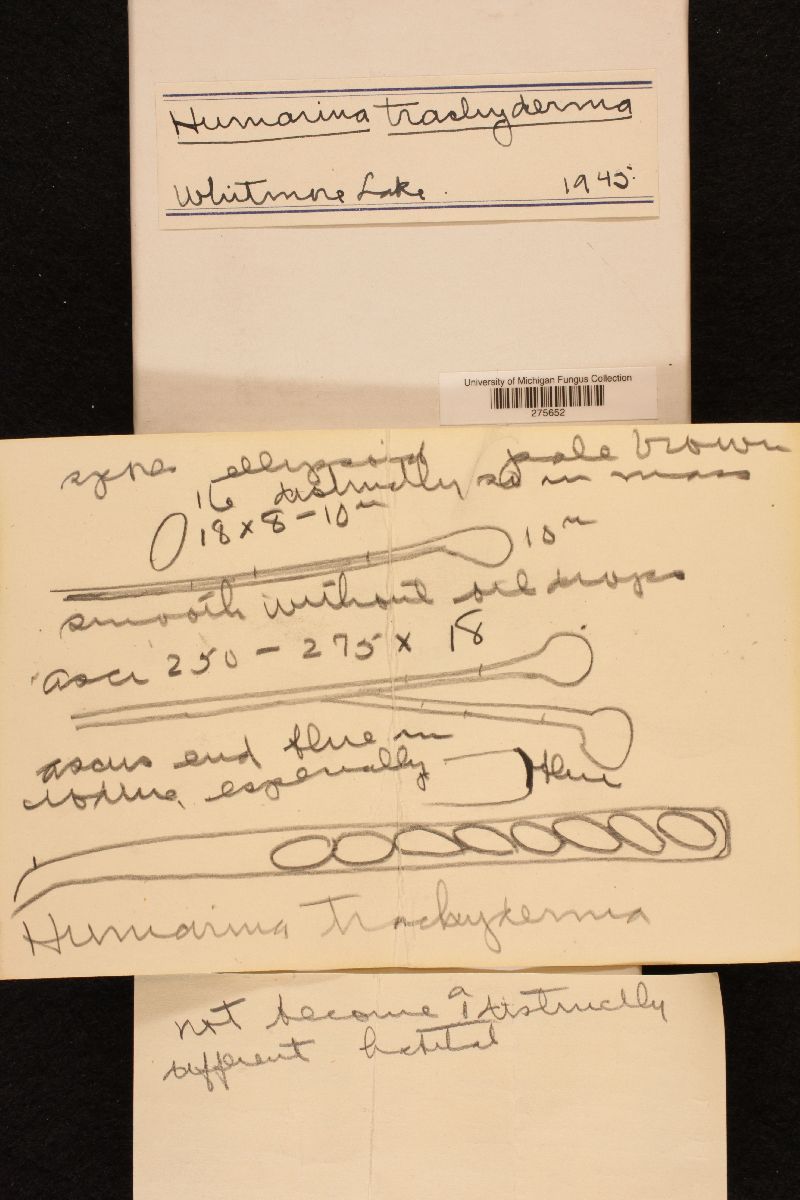 Humarina trachyderma
Whitmore Lake. 1945.
University of Michigan Fungus Collection
275652
spore ellipsoid pale brown
16 distinctly so in mass
18 x 8 - 10 u
10 u
smooth without oil drops
asci 250 - 275 x 18
ascus end blue in
iodine especially blue
Humarina trachyderma
not because a distinctly
different habitat